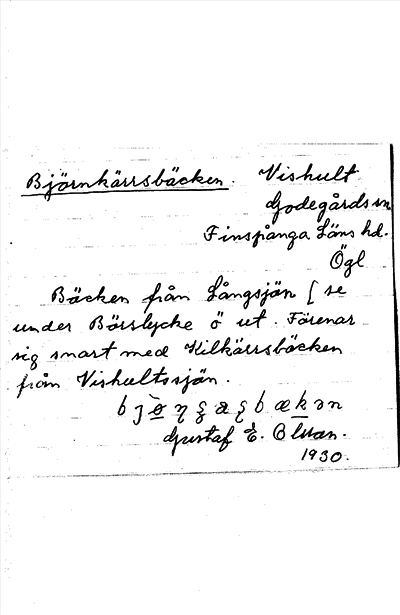 Björnkärrsbäcken. Vishult
Godegårds sn
Finspånga Läns hd.
Ögl
Bäcken från Långsjön [ se
under Börslycke ö ut. Förenar
sig snart med Kilkärrsbäcken
från Vishultssjön.
Gustaf E. Ollman.
1930.